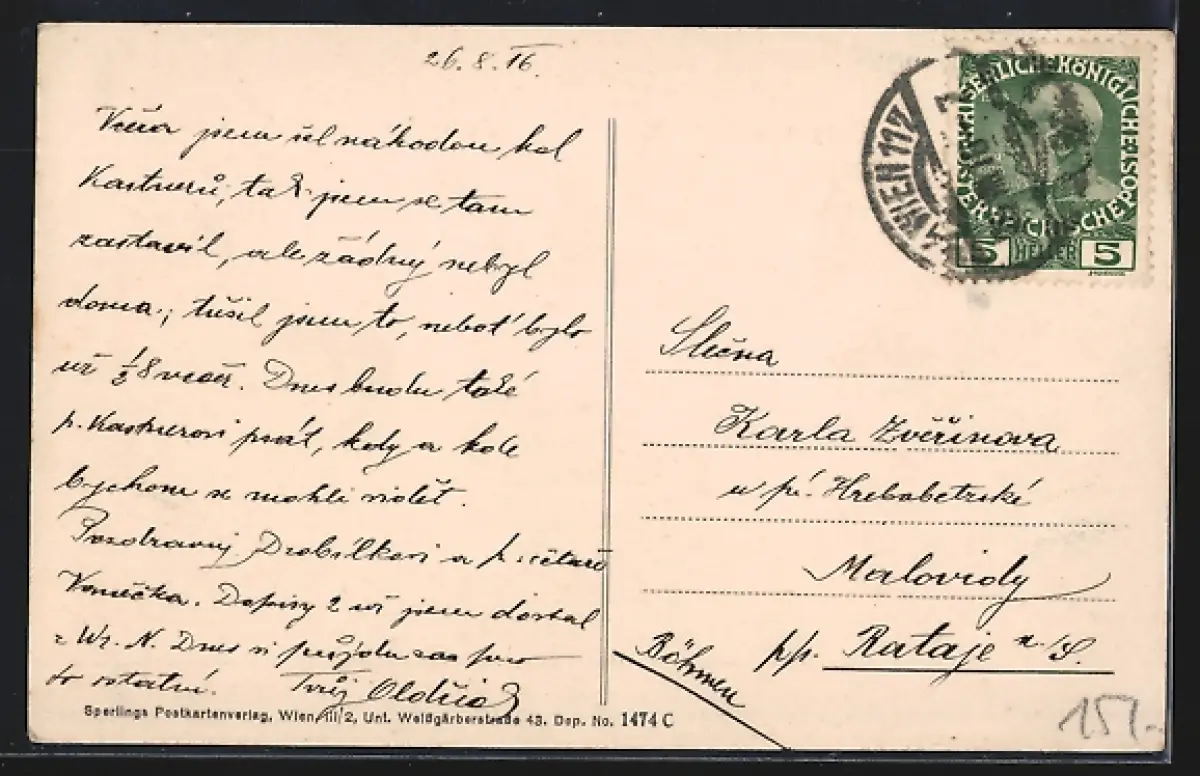 26.8.16.
Včera jsem šel náhodou kol
Kastnerů, tak jsem se tam
zastavil, ale žádný nebyl
doma; tušil jsem to, neboť bylo
už ½8 večer. Dnes budu také
p. Kastnerovi psát, kdy a kde
bychom se mohli vidět.
Pozdravuj Drobílkovi a p. četaře
Vaněčka. Dopisy 2 už jsem dostal
z Wr. N. Dnes si půjdu zas pro
to ostatní. Tvůj Oldřich
Sperlings Postkartenverlag, Wien, III/2, Unt. Weißgärberstraße 43. Dep. No. 1474 C
WIEN 117
KAISERLICHE KÖNIGLICHE ÖSTERREICHISCHE POST
5 HELLER 5
Slečna
Karla Zvěřinova
u pí. Hrebabetzské
Malovidy
p/p. Rataje n./S.
Böhmen
15/-